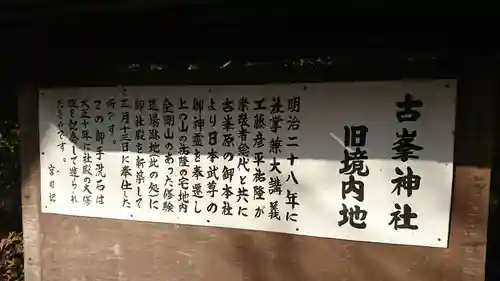 古峯神社
旧境内地
明治二十八年に
社掌兼大講義
工藤彦平祐隆が
崇敬者総代と共に
古峯原の御本社
より日本武尊の
御神霊を奉遷し
上の山の祐隆の宅地内
金剛山のあった修験
道場跡地此の処に
御社殿を新築して
三月十三日に奉仕した
所です。
この御手洗石は
大正十年に社殿の大修
理を記念して造られ
たものです。
宮司記